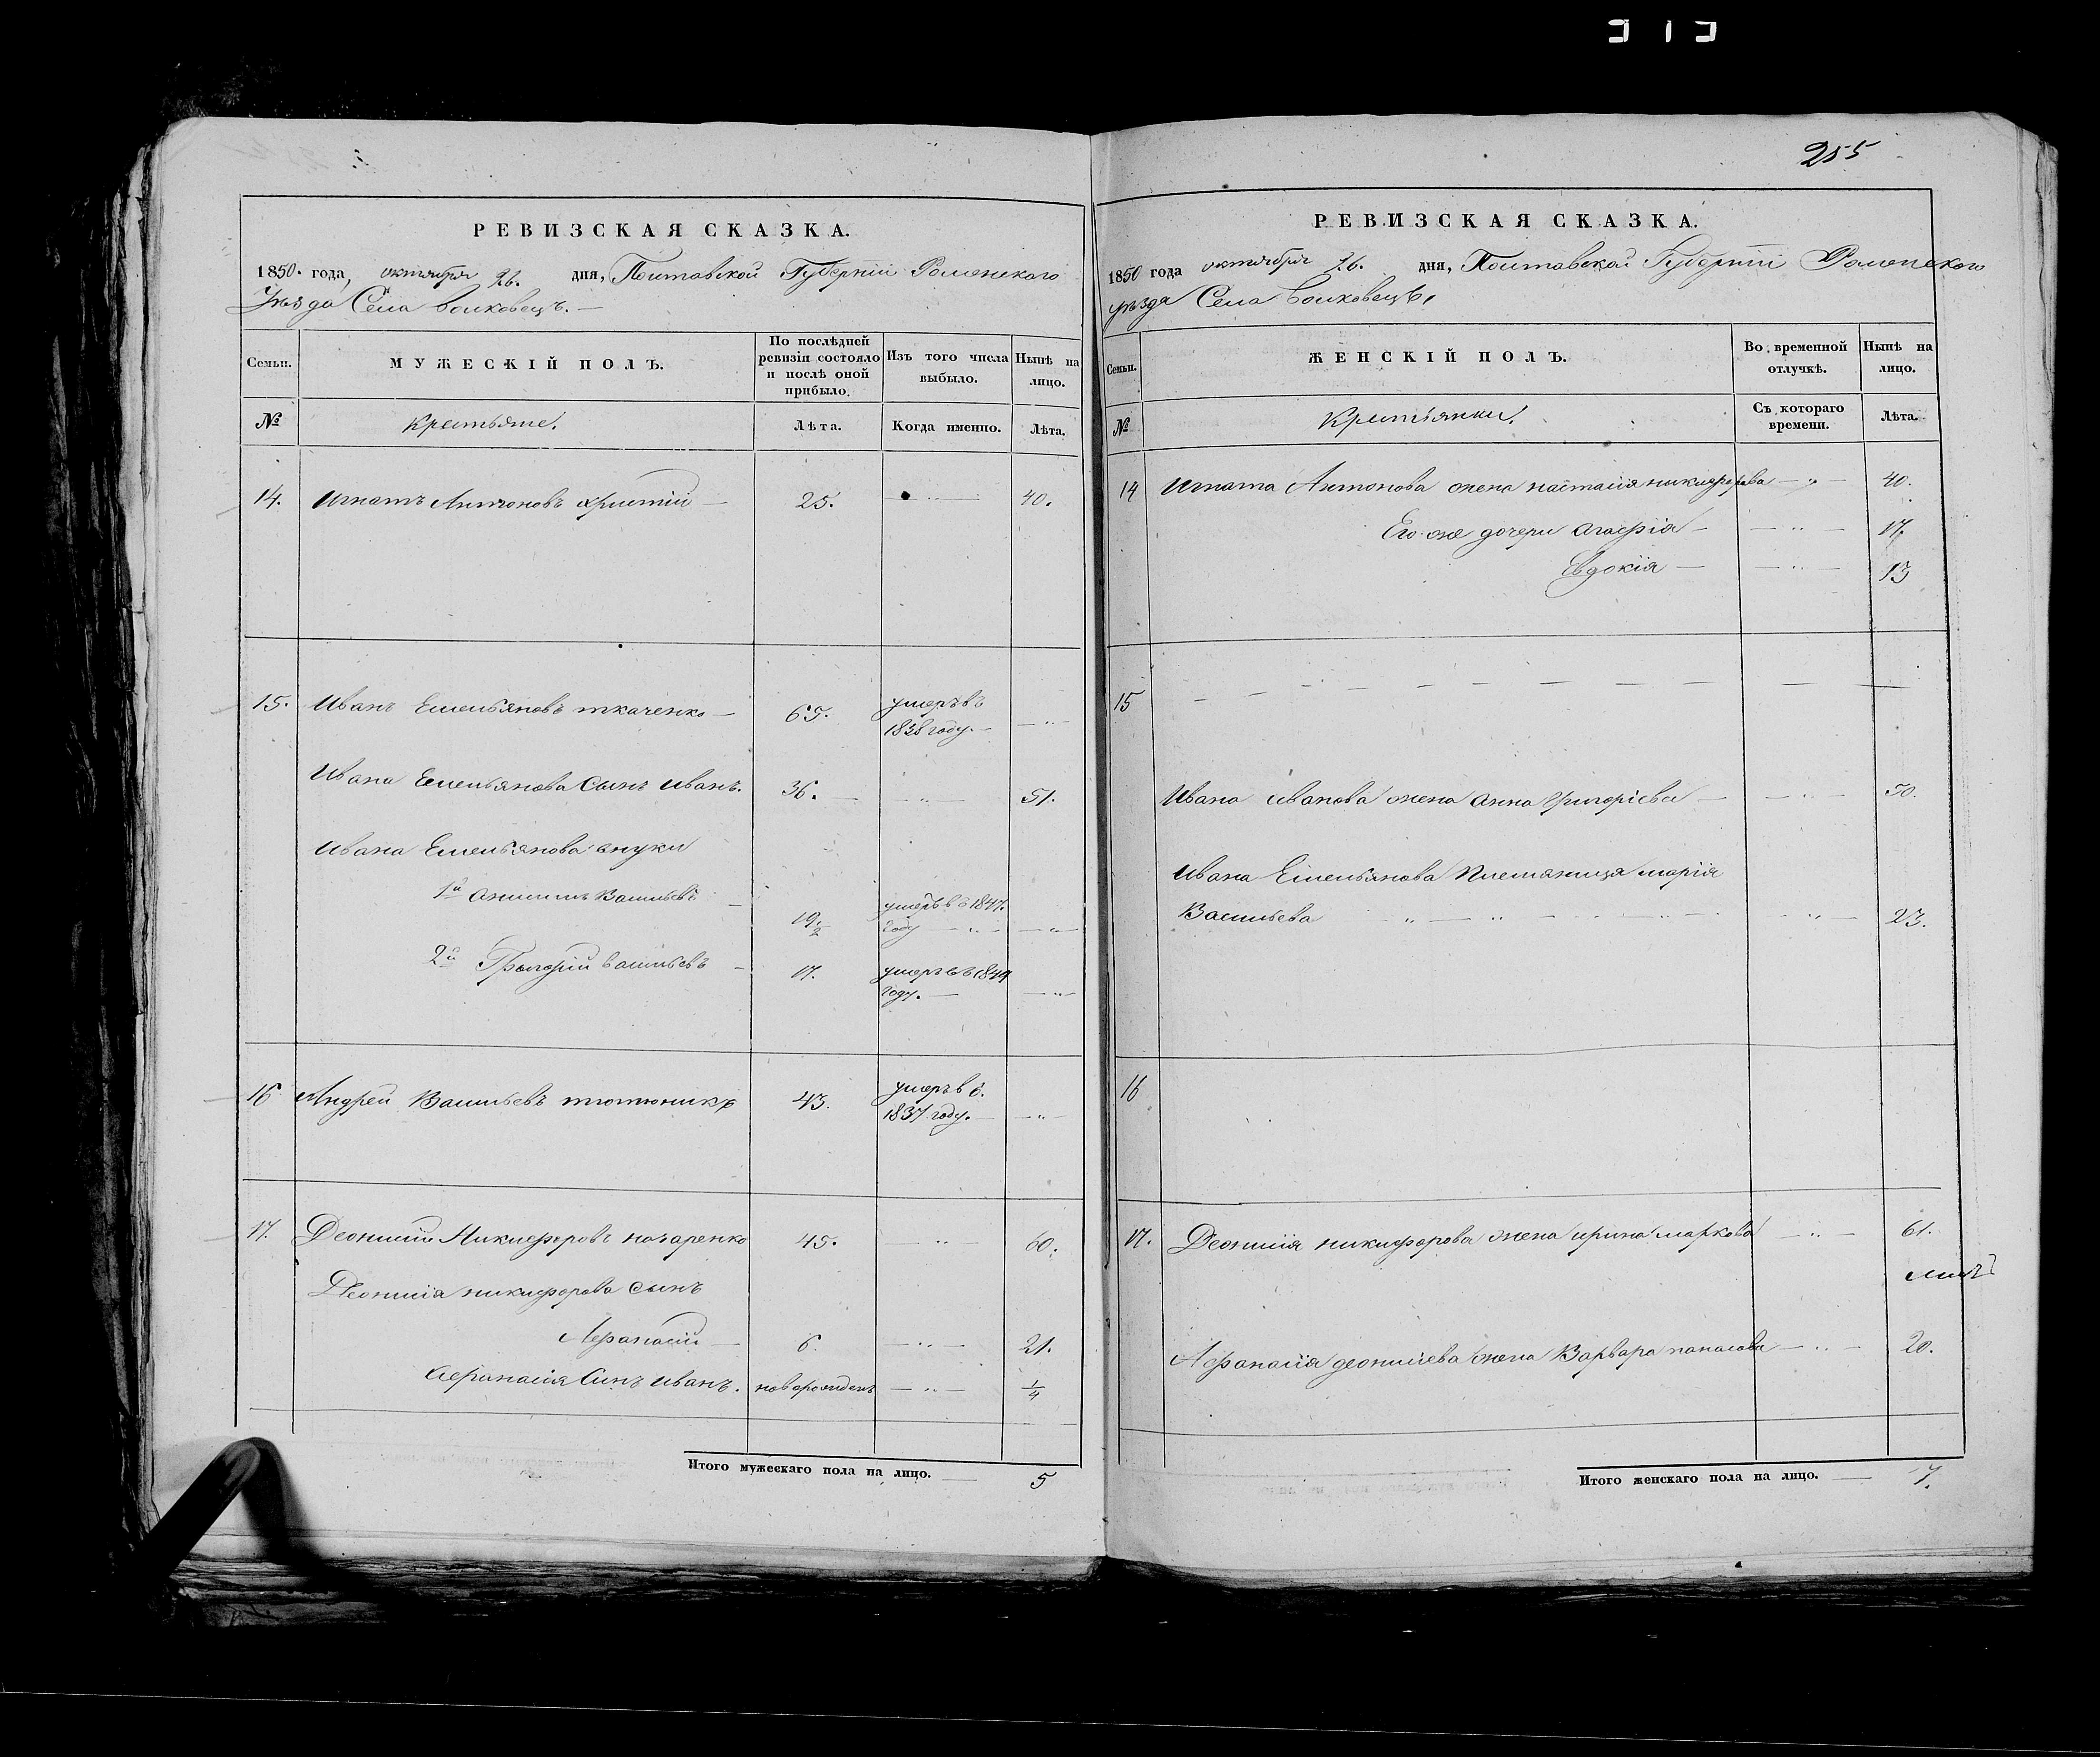 313
255
РЕВИЗСКАЯ СКАЗКА.
1850. года, октября 26. дня, Полтавской Губерніи Роменскаго
Уѣзда Села Волковецъ. —
Семьи.
МУЖЕСКІЙ ПОЛЪ.
По послѣдней ревизіи состояло и послѣ оной прибыло.
Изъ того числа выбыло.
Нынѣ на лицо.
№
Крестьяне.
Лѣта.
Когда именно.
Лѣта.
14. Игнатъ Антоновъ — 25. — 40.
15. Иванъ Емельяновъ ткаченко — 65. умеръ въ 1838 году. — „ —
Ивана Емельянова Сынъ Иванъ. 36. — „ — 51.
Ивана Емельянова внуки
1й Васильевъ — 19 1/2 умеръ въ 1847. году — „ —
2й Григорій васильевъ — 17. умеръ въ 1844 году. — „ —
16 Андрей Васильевъ тютюникъ 43. умеръ въ 1837 году. — „ —
17. Деонисій Никифоровъ 45. — „ — 60.
Деонисія никифорова сынъ
Афанасій — 6. — „ — 21.
Афанасія Сынъ Иванъ. новорожденъ — „ — 1/4
Итого мужескаго пола на лицо. — 5
РЕВИЗСКАЯ СКАЗКА.
1850 года октября 26. дня, Полтавской Губерніи Роменскаго
уѣзда Села Волковецъ,
Семьи.
ЖЕНСКІЙ ПОЛЪ.
Во временной отлучкѣ.
Нынѣ на лицо.
№
Крестьянки.
Съ котораго времени.
Лѣта.
14 Игната Антонова жена настасія никифорова — „ — 40.
Его же дочери агафія — — „ — 17.
Евдокія — — „ — 13
15 — — — — — — — —
Ивана иванова жена анна григоріева — — „ — 50.
Ивана Емельянова племяница марія
Васильева „ — „ — „ — 23.
16
17. Деонисія никифорова жена ирина маркова — „ — 61.
Афанасія деонисіева жена Варвара — „ — 20.
Итого женскаго пола на лицо. — 7.